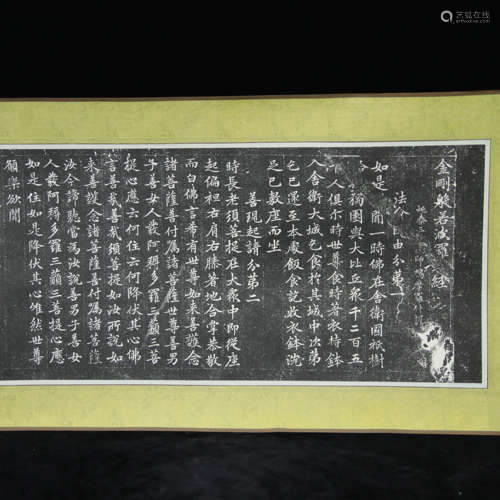 艺狐在线
金剛般若波羅經
姚秦三鳩摩羅什
法會因由分第一
如是聞一時佛在舍衛國祇樹
獨園與大比丘衆千二百五
人俱尔時世尊食時著衣持鉢
入舍衛大城乞食於其城中次第
乞已還至本處飯食訖收衣鉢洗
足已敷座而坐
善現起請分第二
時長老須菩提在大衆中即從座
起偏袒右肩右膝著地合掌恭敬
而白佛言希有世尊如来善護念
諸菩薩善付属諸菩薩世尊善男
子善女人發阿耨多羅三藐三菩
提心應云何住云何降伏其心佛
言善哉善哉須菩提如汝所說如
来善護念諸菩薩善付属諸菩薩
汝今諦聽當為汝說善男子善女
人發阿耨多羅三藐三菩提心應
如是住如是降伏其心唯然世尊
願樂欲聞